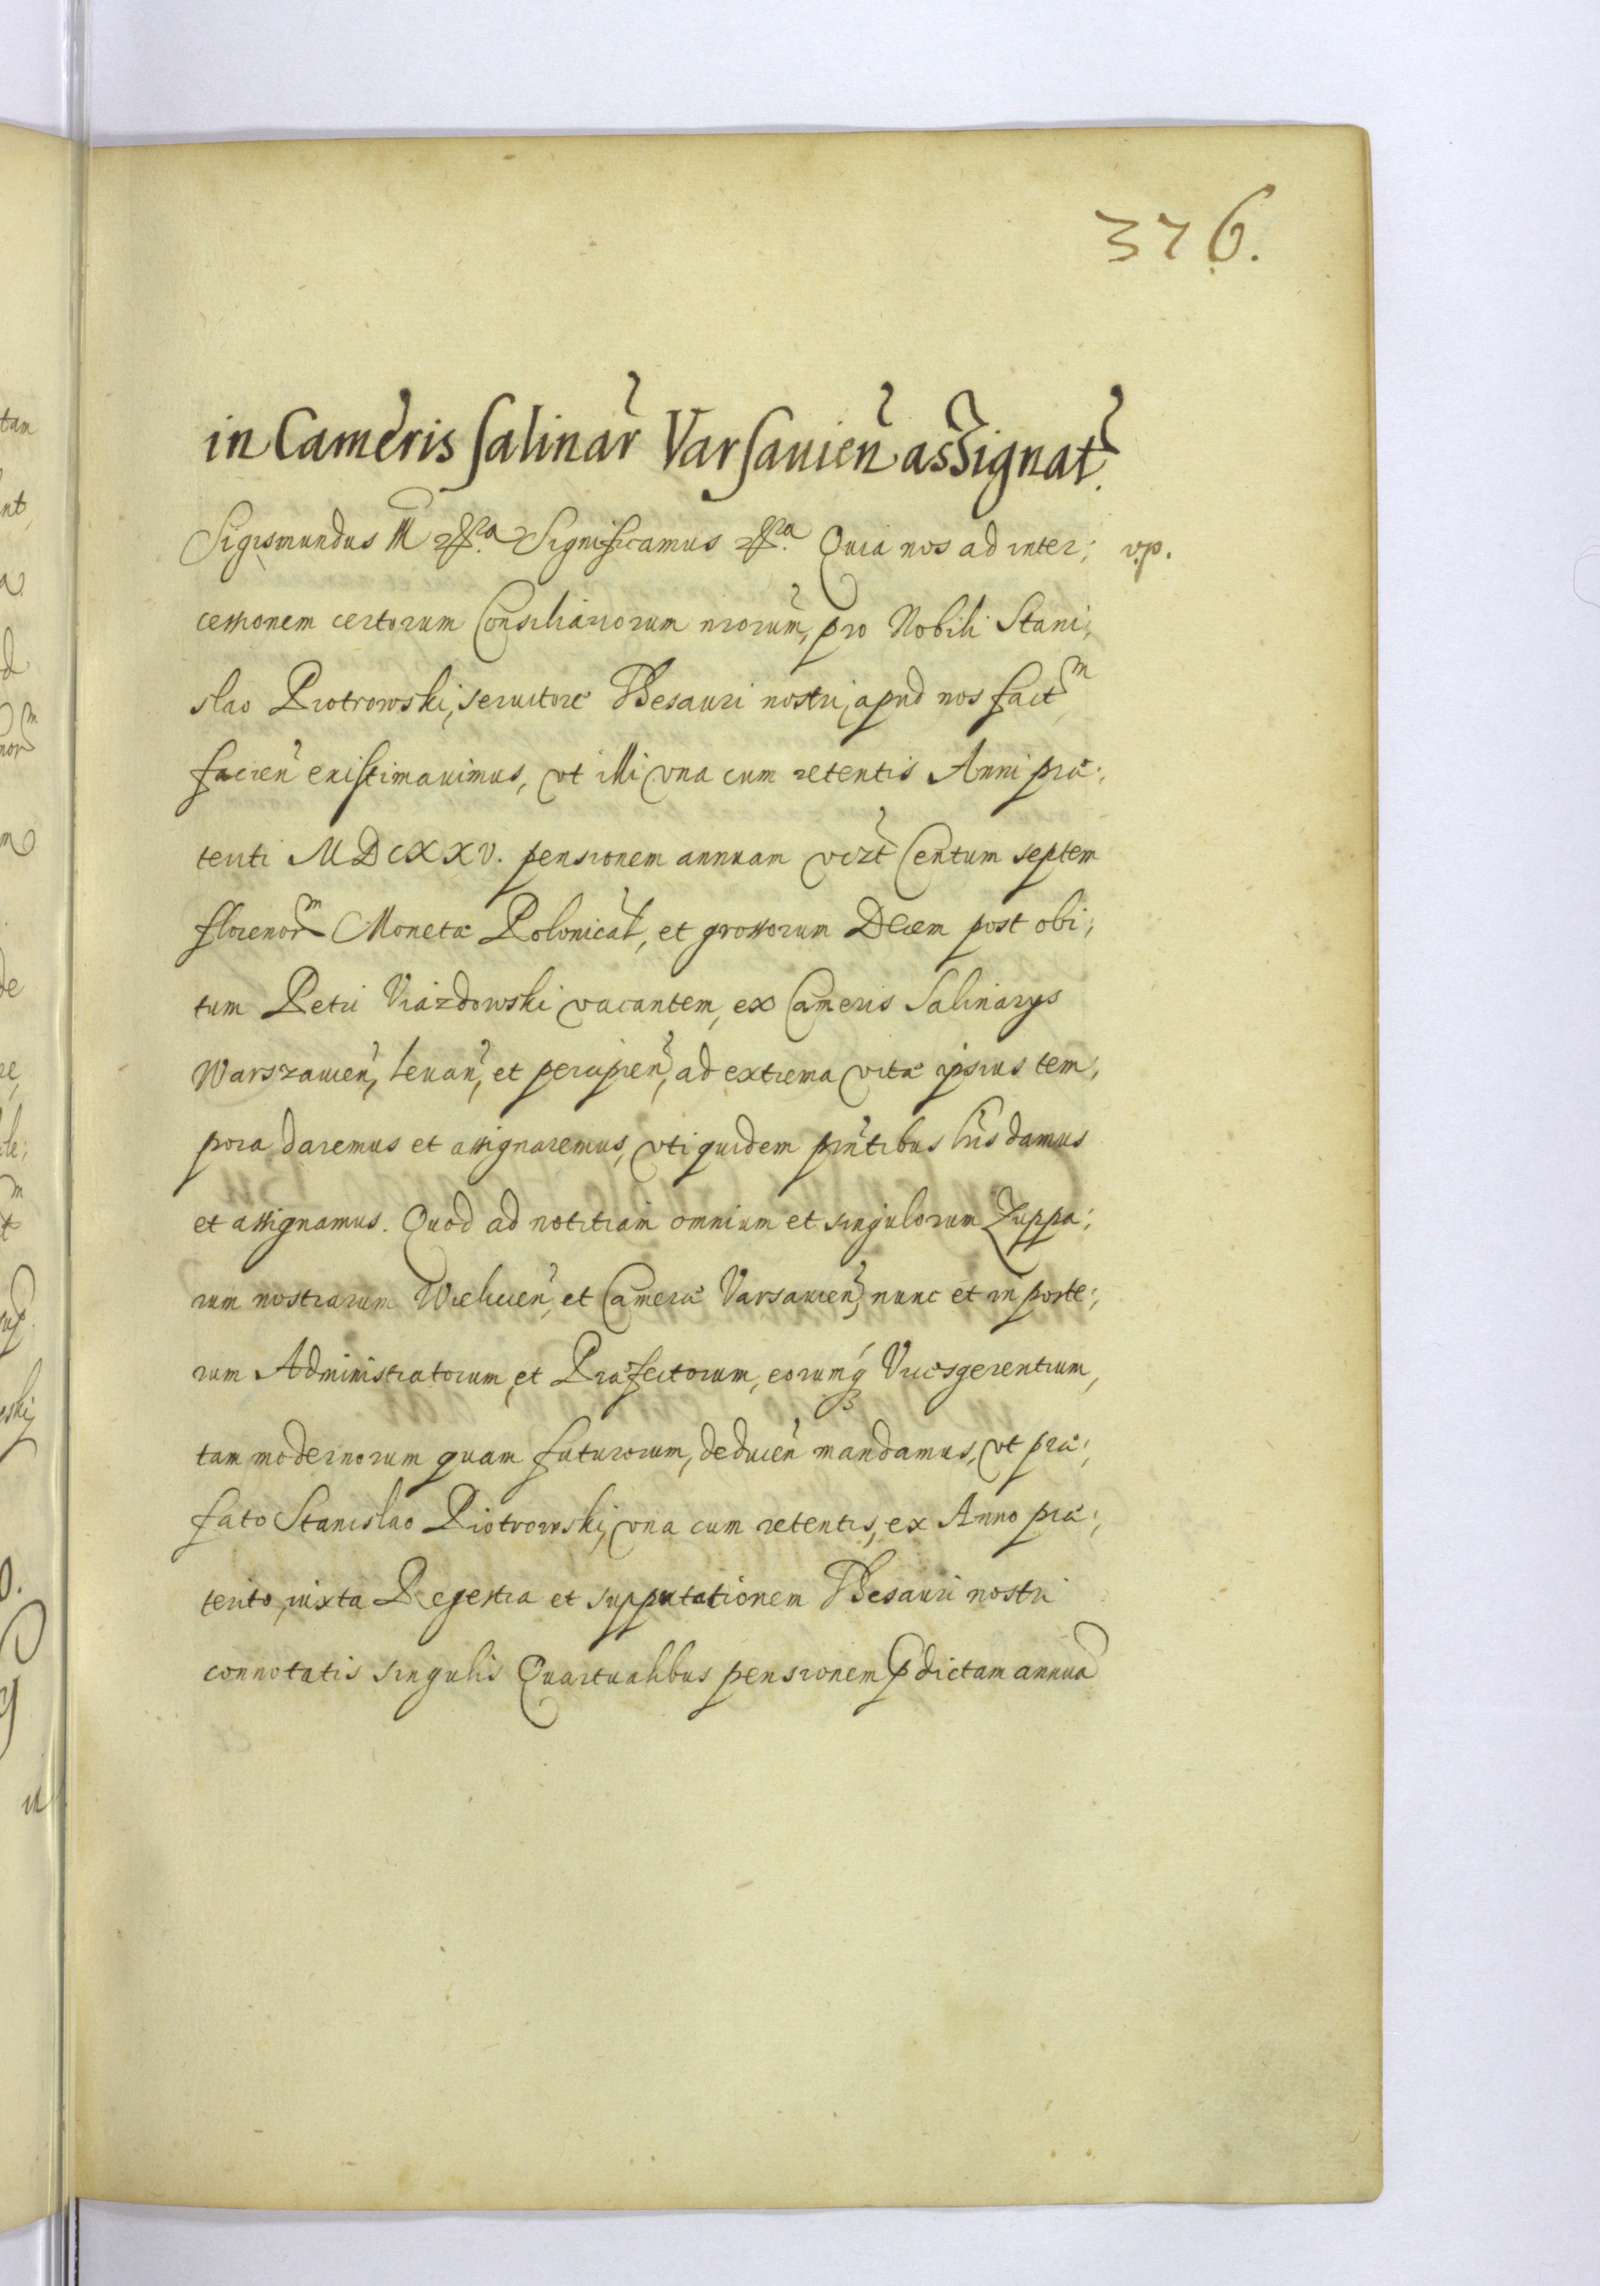 376.
in Cameris salinar Varsavien assignat.
Sigismundus III etca Significamus etca Quia nos ad inter; vp.
cessionem certorum Consiliariorum nrorum, pro Nobili Stani;
slao Piotrowski, servitore Thesauri nostri, apud nos factm
facien existimavimus, vt illi vna cum retentis Anni præ;
teriti MDCXXV. pensionem annuam vizt Centum septem
florenorm Monetæ Polonical, et grossorum Decem post obi;
tum Petri Viazdowski vacantem, ex Cameris Salinarys
Warszavien, levan, et percipien, ad extrema vitæ ipsius tem,
pora daremus et assignaremus, vti quidem pntibus lris damus
et assignamus. Quod ad notitiam omnium et singulorum Zuppa;
rum nostrarum Wielicien, et Cameræ Varsavien, nunc et in poste;
rum Administratorum, et Præfectorum, eorumq Vicesgerentium,
tam modernorum quam futurorum, deducien mandamus, vt præ;
fato Stanislao Piotrowski, vna cum retentis, ex Anno præ;
terito, iuxta Regestra et supputationem Thesauri nostri
connotatis singulis Quartualibus pensionem pdictam annua